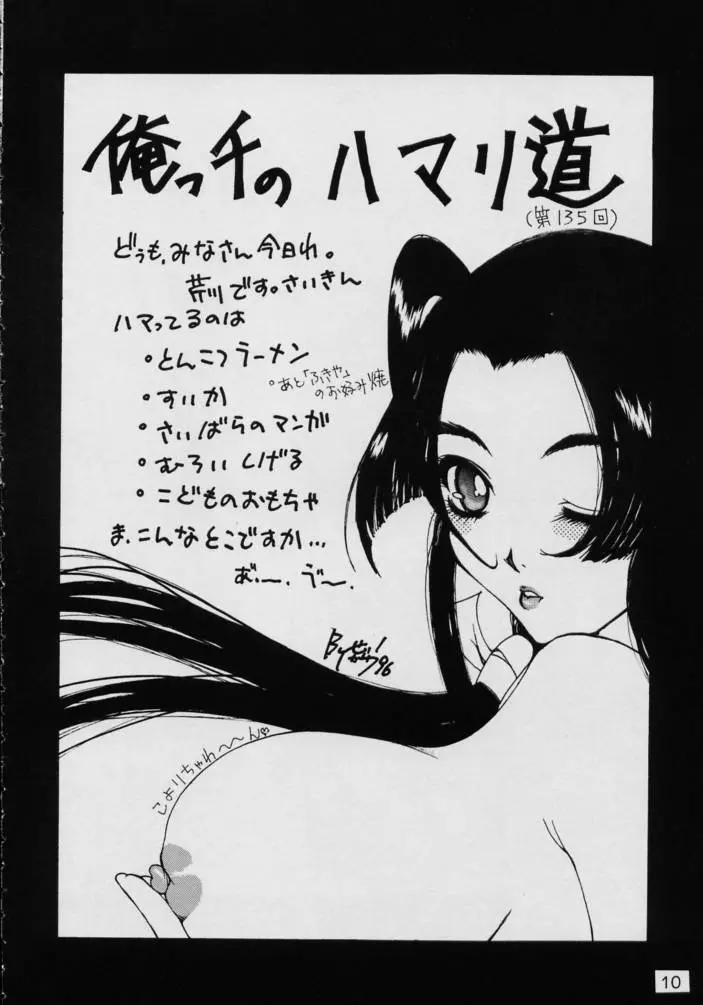 俺っ千の ハマり道
(第135回)
どうも、みなさん今日わ。
荒川です。さいきん
ハマってるのは
・とんこつラーメン
・あと「ふきや」
のお好み焼
・すいか
・さいばらのマンガ
・むろい しげる
・こどものおもちゃ
ま、こんなとこですか…
By '96
こよりちゃわ〜〜ん♡
10